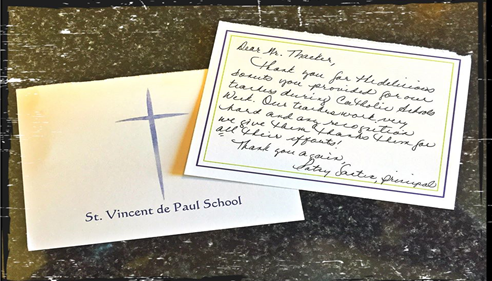 Dear Mr. Thacker,
Thank you for the delicious
donuts you provided for our
teachers during Catholic Schools
Week. Our teachers work very
hard and any recognition
we give them thanks them for
all their efforts!
Thank you again,
Patsy Principal
St. Vincent de Paul School